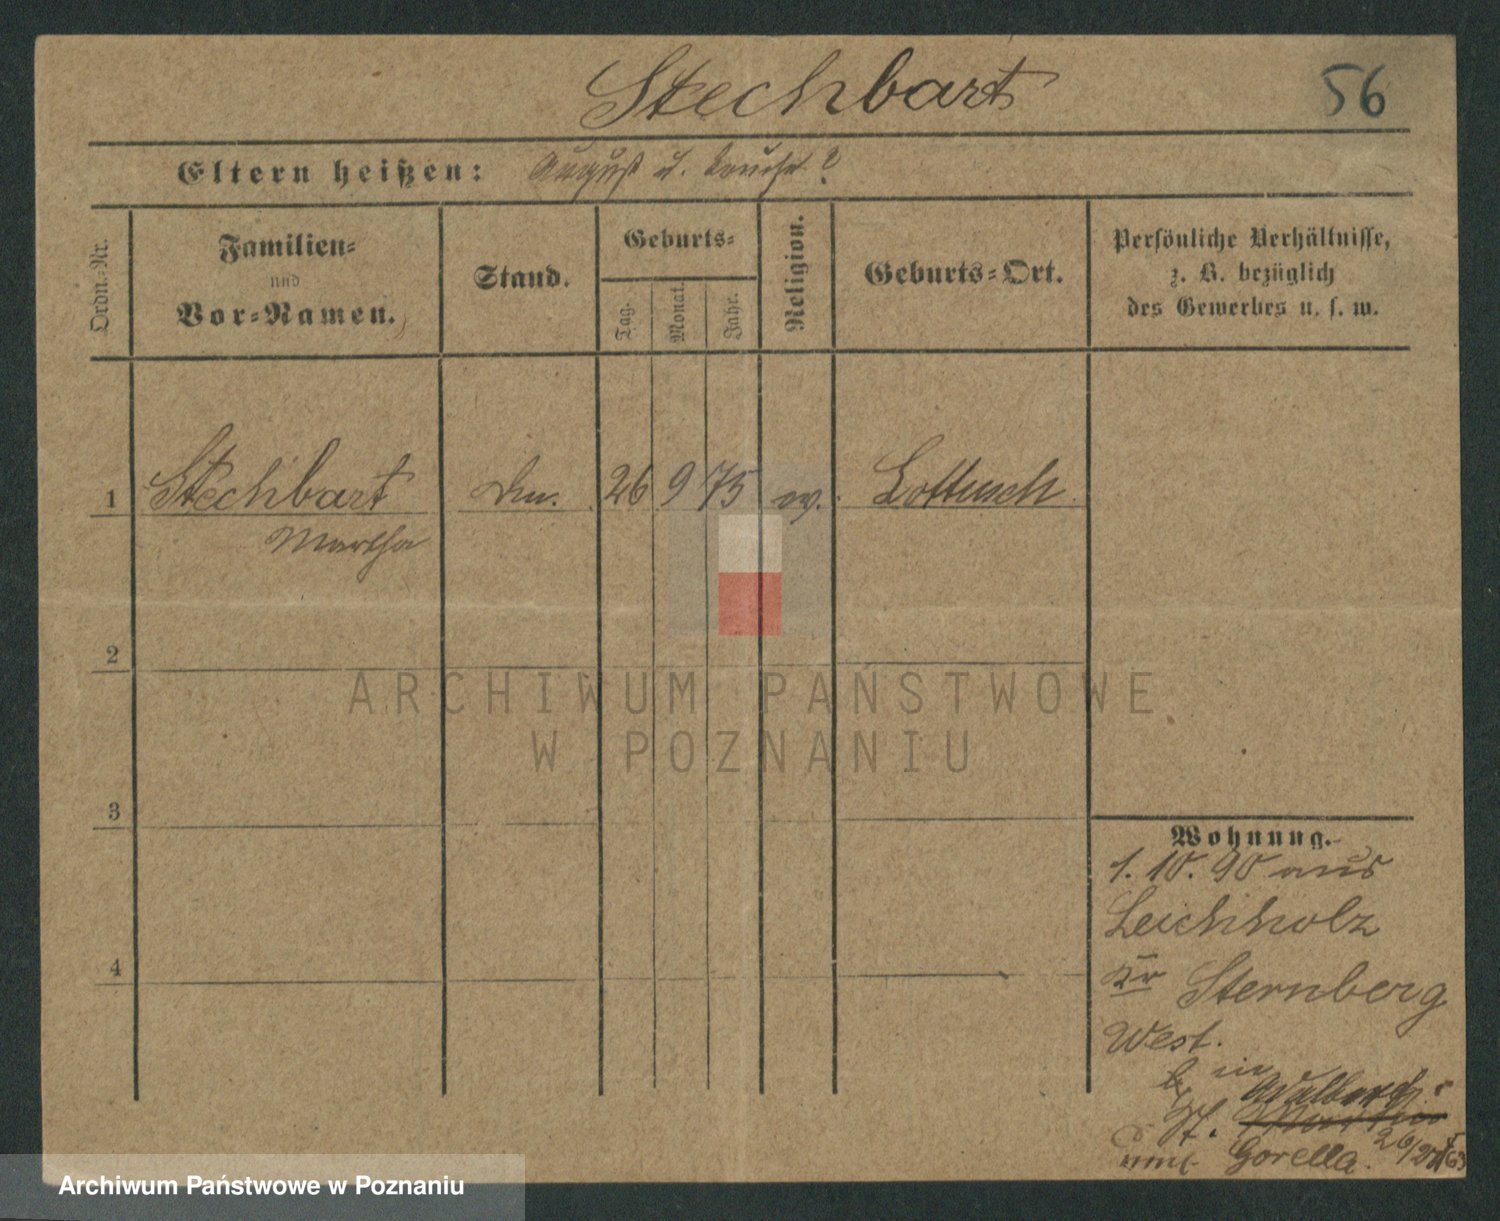 Stechbart
56
Eltern heißen: August u. Louise ?
Ordn.-Nr.
Familien-
und
Vor-Namen.
Stand.
Geburts-
Tag.
Monat.
Jahr.
Religion.
Geburts-Ort.
Persönliche Verhältnisse,
z. B. bezüglich
des Gewerbes u. s. w.
1 Stechbart 26 9 75 ev.
Martha
2
3
4
Wohnung.
1. 10. 90 aus
Leichholz
Kr Sternberg
West.
in
Gorella.
ARCHIWUM PAŃSTWOWE
W POZNANIU
Archiwum Państwowe w Poznaniu